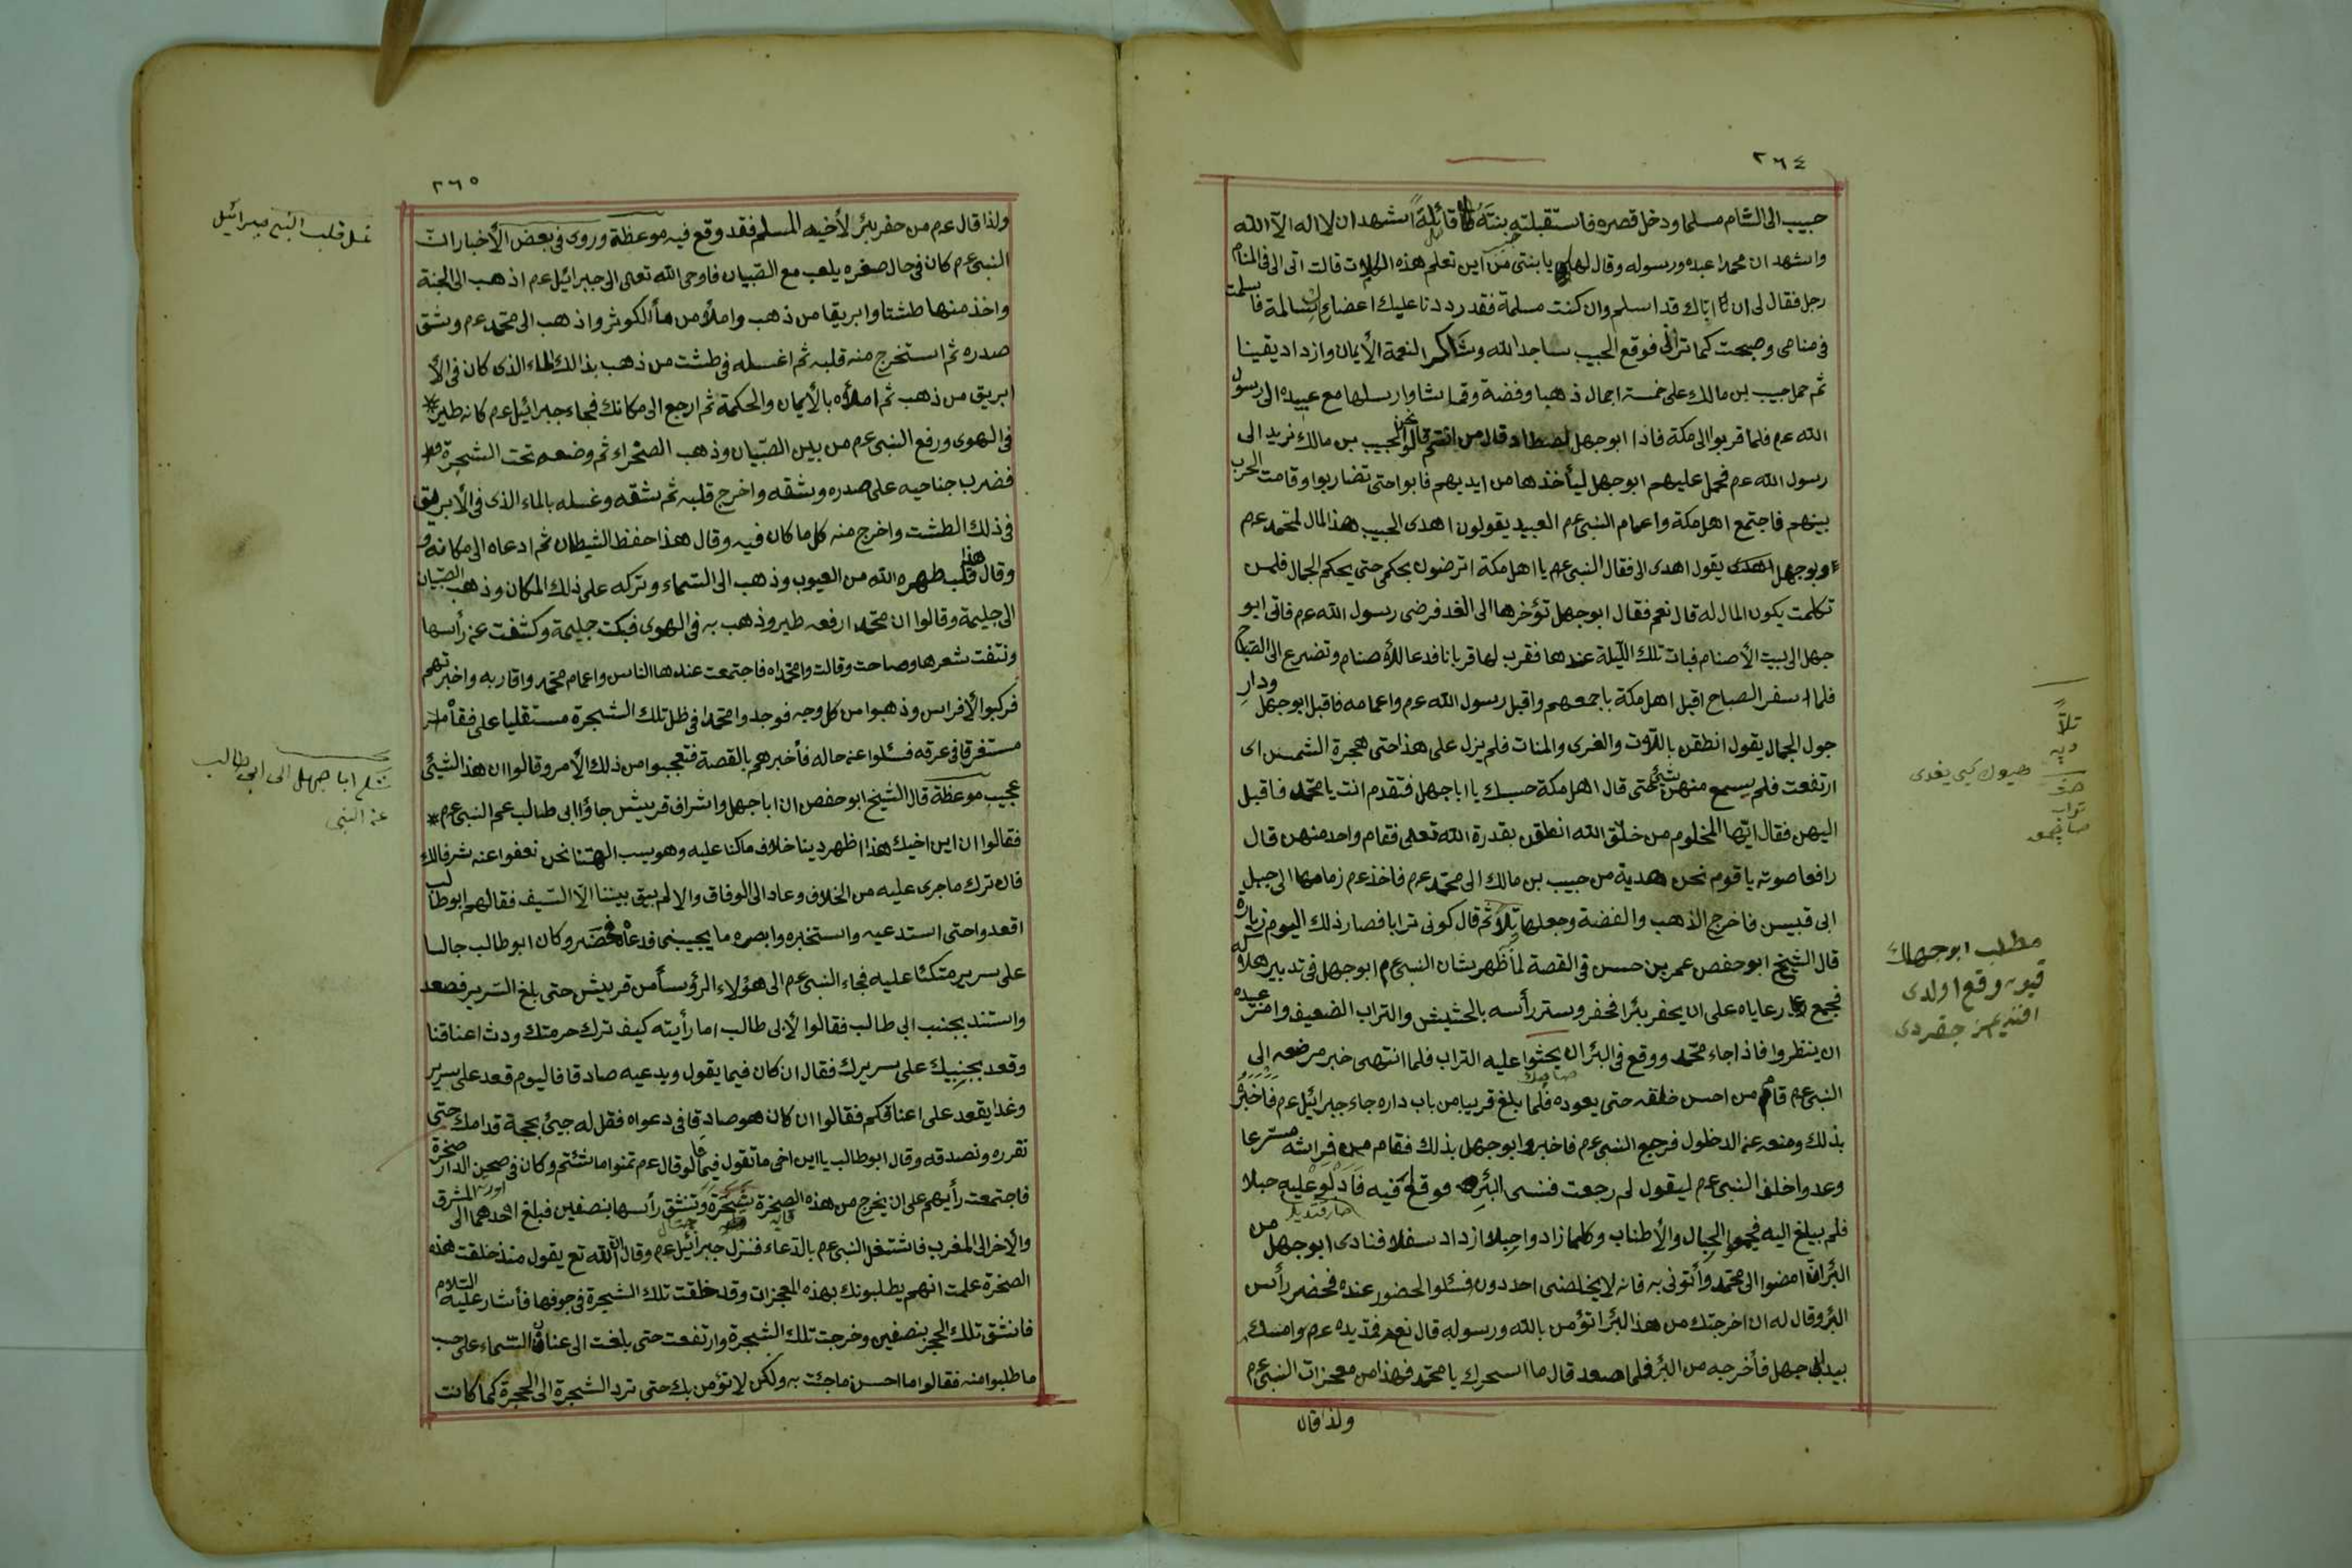 ٢٦٤
حبيب الى الشام مسلما ودخل قصره فاستقبلته بنته قائلة اشهد ان لا اله الا الله
واشهد ان محمدا عبده ورسوله وقال لها يا بنتى من اين تعلم هذه الكلمات قالت اتى الى فى المنام
رجل فقال لى ان اباك قد اسلم وان كنت مسلمة فقد رددنا عليك اعضاءك سالمة فاسلمت
فى منامى وصبحت كما ترانى فوقع الحبيب ساجد الله وشاكر النعمة الأيمان وازداد يقينا
ثم حمل حبيب بن مالك على خمسة اجمال ذهبا وفضة وقماشا وارسلها مع عبيده الى رسول
الله عم فلما قربوا الى مكة فاذا ابو جهل قال من انتم قالوا نحن لحبيب بن مالك نريد الى
رسول الله عم فحمل عليهم ابو جهل ليأخذها من ايديهم فابوا حتى تضاربوا وقامت الحرب
بينهم فاجتمع اهل مكة واعمام النبى عم العبيد يقولون اهدى الحبيب هذا المال لمحمد عم
وابو جهل يقول اهدى الى فقال النبى عم يا اهل مكة اترضون بحكمى حتى يحكم الجمال فلمن
تكلمت يكون المال له قال نعم فقال ابو جهل تؤخرها الى الغد فرضى رسول الله عم فاتى ابو
جهل الى بيت الأصنام فبات تلك الليلة عندها فقرب لها قربانا فدعا للأصنام وتضرع الى الصباح
فلما اسفر الصباح اقبل اهل مكة باجمعهم واقبل رسول الله عم واعمامه فاقبل ابو جهل ودار
حول الجمال يقول انطقن باللات والعزى والمنات فلم يزل على هذا حتى هجرة الشمس اى
ارتفعت فلم يسمع منهن شئ حتى قال اهل مكة حسبك يا ابا جهل فتقدم انت يا محمد فاقبل
اليهن فقال ايها المخلوم من خلق الله انطقن بقدرة الله تعلى فقام واحد منهن قال
رافعا صوته يا قوم نحن هدية من حبيب بن مالك الى محمد عم فاخذ عم زمامها الى جبل
ابى قبيس فاخرج الذهب والفضة وجعلها تلا ثم قال كونى ترابا فصار ذلك اليوم زيارة
قال الشيخ ابو حفص عمر بن حسن فى القصة لما ظهر بشان النبى عم ابو جهل فى تدبير هلاكه
فجمع رعاياه على ان يحفر بئرا فحفر وستر رأسه بالحشيش والتراب الضعيف وامر عبيده
ان ينظروا فاذا جاء محمد ووقع فى البئر ان يحثوا عليه التراب فلما انتهى خبر مرضعه الى
النبى عم قام من احسن خلقه حتى يعوده فلما بلغ قريبا من باب داره جاء جبرائيل عم فاخبره
بذلك ومنعه عن الدخول فرجع النبى عم فاخبروا ابو جهل بذلك فقام من فراشه مسترعا
وعدوا خلف النبى عم ليقول لم رجعت فنسى البئر فوقع فيه فادلو عليه حبلا
فلم يبلغ اليه فجمعوا الحبال والأطناب وكلما زادوا حبلا ازداد سفلا فنادى ابو جهل من
البئر ان امضوا الى محمد وأتونى به فانه لا يخلصنى احد دون فسئلوا الحضور عنده فحضر رأس
البئر وقال له ان اخرجتك من هذا البئر اتؤمن بالله ورسوله قال نعم فمد يده عم وامسك
بيد ابى جهل فأخرجه من البئر فلما صعد قال ما اسحرك يا محمد فهذا من معجزات النبى عم
ولذا قال
تلاّ
دپه
مطلب ابو جهلك
قيويه وقع اولدى
افنديمز چقردى
٢٦٥
ولذا قال عم من حفر بئرا لأخيه المسلم فقد وقع فيه موعظة وروى فى بعض الأخبار ان
النبى عم كان فى حال صغره يلعب مع الصبيان فاوحى الله تعالى الى جبرائيل عم اذهب الى الجنة
واخذ منها طشتا وابريقا من ذهب واملأه من ماء الكوثر واذهب الى محمد عم وشق
صدره ثم استخرج منه قلبه ثم اغسله فى طشت من ذهب بذالك الماء الذى كان فى الأ
ابريق من ذهب ثم املأه بالأيمان والحكمة ثم ارجع الى مكانك فجاء جبرائيل عم كانه طير
فى الهوى ورفع النبى عم من بين الصبيان وذهب الصحراء ثم وضعه تحت الشجرة
فضرب جناحيه على صدره وشقه واخرج قلبه ثم شقه وغسله بالماء الذى فى الأبريق
فى ذلك الطشت واخرج منه كل ما كان فيه وقال هذا حفظ الشيطان ثم ادعاه الى مكانه
وقال هذا قلب طهره الله من العيوب وذهب الى السماء وتركه على ذلك المكان وذهب الصبيان
الى حليمة وقالوا ان محمد ارفعه طير وذهب به فى الهوى فبكت حليمة وكشفت عن رأسها
ونتفت شعرها وصاحت وقالت وامحمداه فاجتمعت عندها الناس واعمام محمد واقاربه واخبرتهم
فركبوا الأفراس وذهبوا من كل وجه فوجدوا محمدا فى ظل تلك الشجرة مستقليا على قفاه
مستغرقا فى عرقه فسئلوا عن حاله فأخبرهم بالقصة فتعجبوا من ذلك الأمر وقالوا ان هذا الشئ
عجيب موعظة قال الشيخ ابو حفص ان ابا جهل واشراف قريش جاؤا ابى طالب عم النبى عم
فقالوا ان ابن اخيك هذا اظهر دينا خلاف ما كنا عليه وهو يسب الهتنا نحن نعفوا عنه شرفا لك
فان ترك ما جرى عليه من الخلاف وعاد الى الوفاق والا لم يبق بيننا الا السيف فقال لهم ابو طالب
اقعدوا حتى استدعيه واستخبره وابصره ما يجيبنى فدعاه فحضر وكان ابو طالب جالسا
على سرير متكئا عليه فجاء النبى عم الى هؤلاء الرؤساء من قريش حتى بلغ السرير فصعد
واستند بجنب ابى طالب فقالوا لأبى طالب اما رأيته كيف ترك حرمتك ودث اعناقنا
وقعد بجنبيك على سريرك فقال ان كان فيما يقول ويدعيه صادقا فاليوم قعد على سرير
وغدا يقعد على اعناقكم فقالوا ان كان هو صادقا فى دعواه فقل له جئ بحجة قدامك حتى
نقرره ونصدقه وقال ابو طالب يا ابن اخى ما تقول فيما قالو قال عم تمنوا ما شئتم وكان فى صحن الدار صخرة
فاجتمعت رأيهم على ان يخرج من هذه الصخرة شجرة وتنشق رأسها بنصفين فبلغ احدهما الى المشرق
والأخر الى المغرب فاشتغل النبى عم بالدعاء فنزل جبرائيل عم وقال ان الله تع يقول منذ خلقت هذه
الصخرة علمت انهم يطلبونك بهذه المعجزات وقد خلقت تلك الشجرة فى جوفها فأشار عليه السلام
فانشق تلك الحجر بنصفين وخرجت تلك الشجرة وارتفعت حتى بلغت الى عنان السماء على حسب
ما طلبوا منه فقالوا ما احسن ما جئت به ولكن لا نؤمن بك حتى ترد الشجرة الى الحجرة كما كانت
غسل قلب النبى جبرائيل
تكلم ابا جهل الى ابى طالب
عن النبى